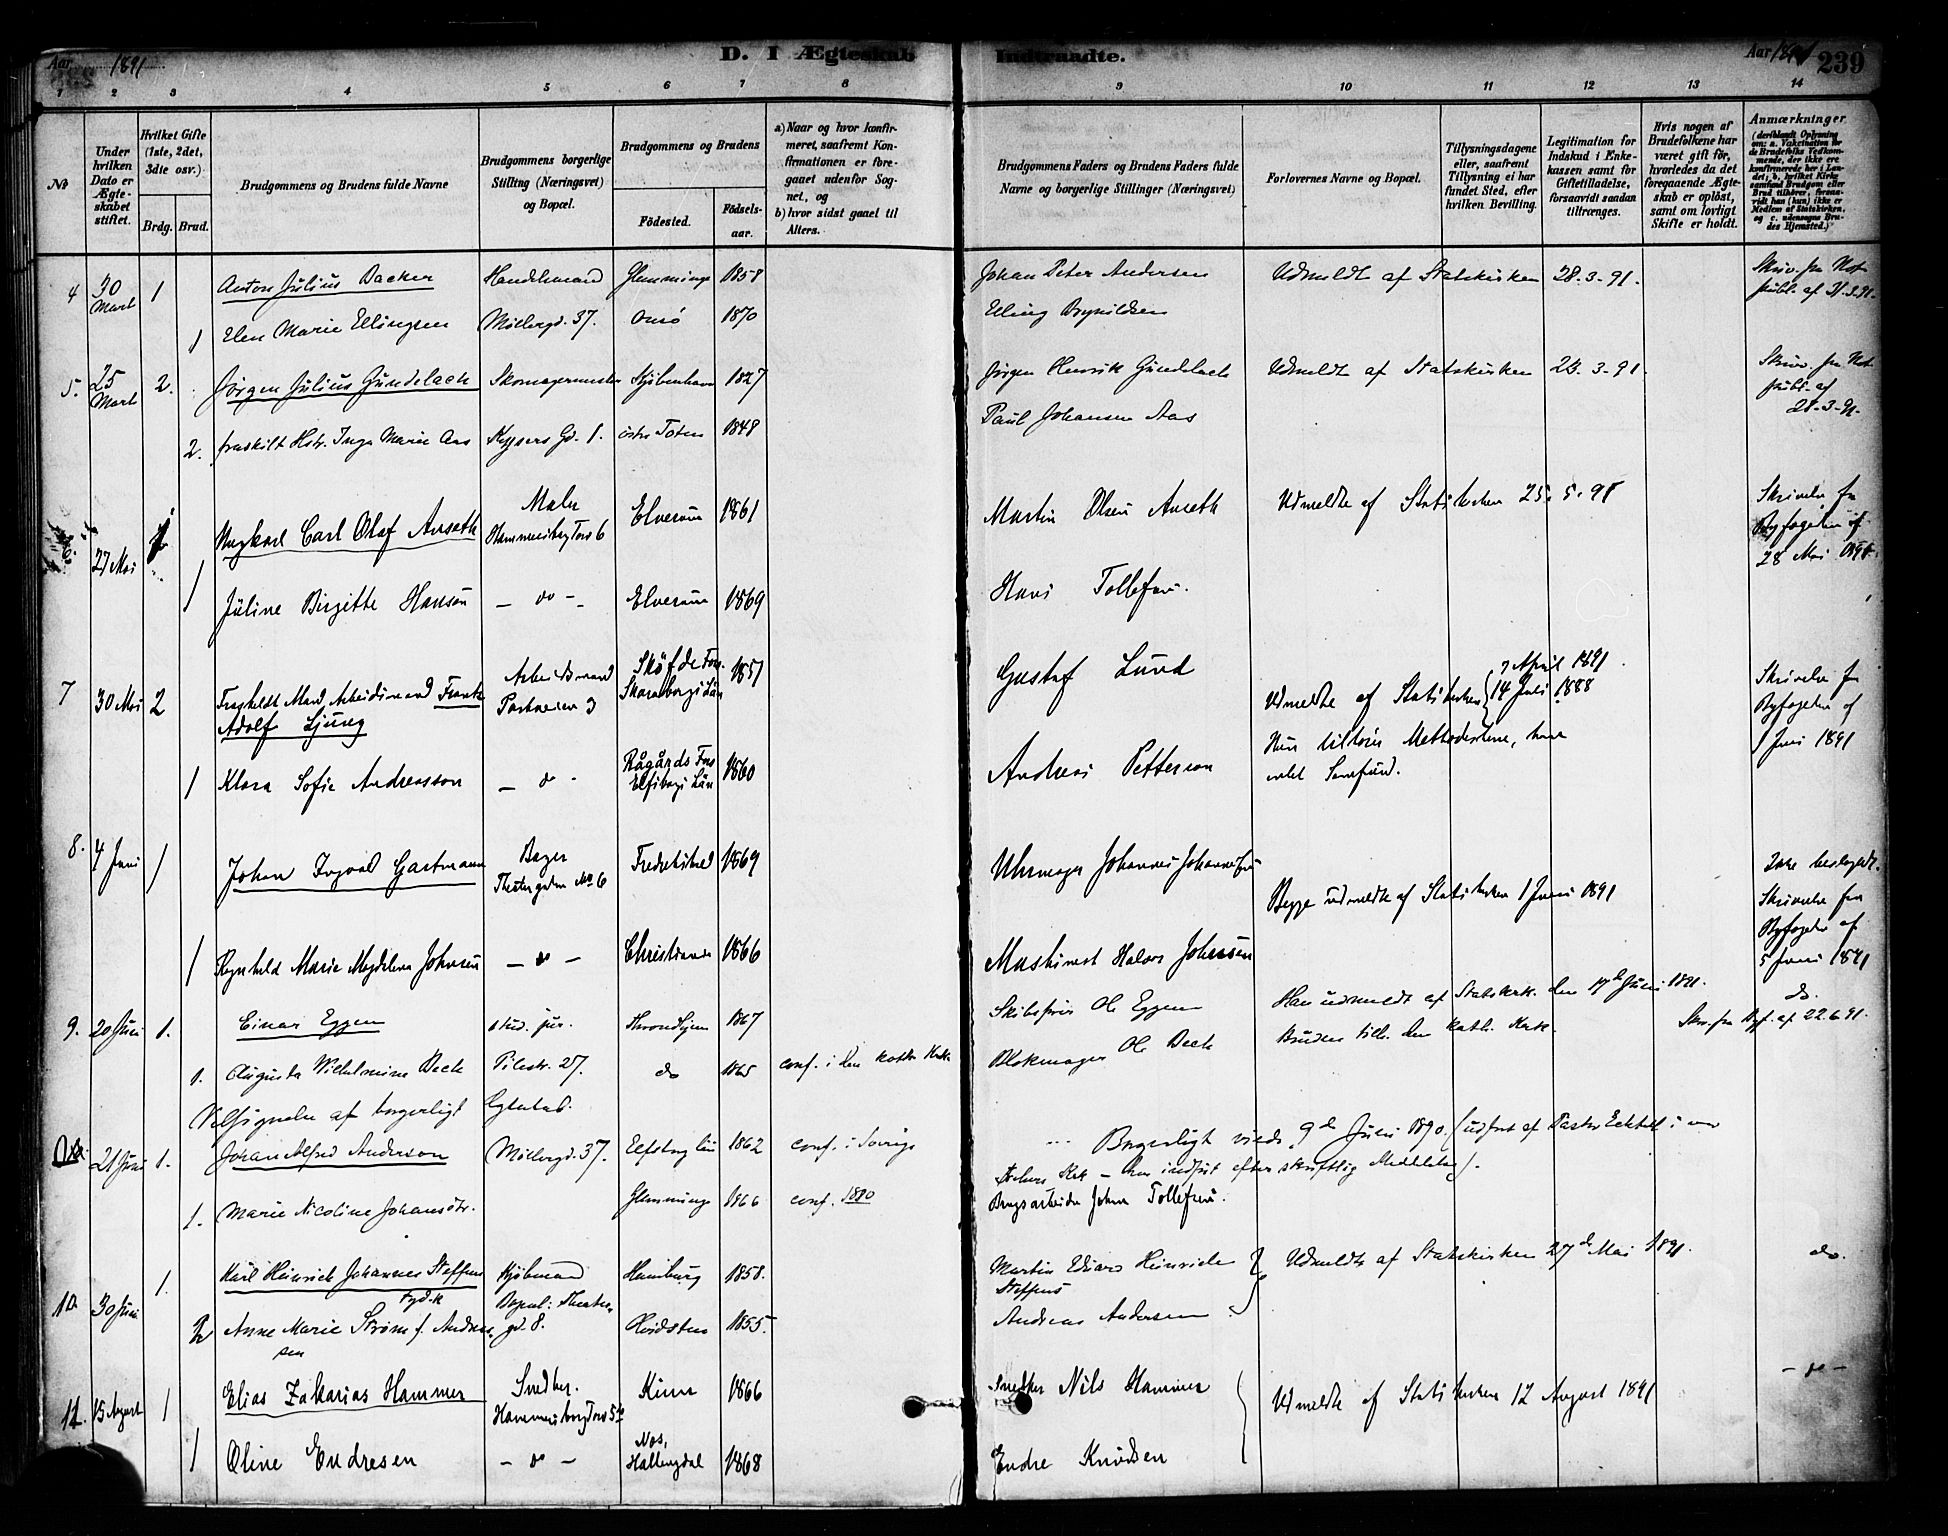 Aar 1891
D. I Ægteskab Indtraadte.
Aar 1891 239
1 2 3 4 5 6 7 8 9 10 11 12 13 14
No
Under hvilken Dato er Ægteskabet stiftet.
Hvilket Gifte (1ste, 2det, 3die osv.)
Brdg. Brud.
Brudgommens og Brudens fulde Navne
Brudgommens borgerlige Stilling (Næringsvei) og Bopæl.
Brudgommens og Brudens
Födested.
Födselsaar.
a) Naar og hvor konfirmeret, saafremt Konfirmationen er foregaaet udenfor Sognet, og
b) hvor sidst gaaet til Alters.
Brudgommens Faders og Brudens Faders fulde Navne og borgerlige Stillinger (Næringsvei)
Forlovernes Navne og Bopæl.
Tillysningsdagene eller, saafremt Tillysning ei har fundet Sted, efter hvilken Bevilling.
Legitimation for Indskud i Enkekassen samt for Giftetilladelse, forsaavidt saadan tiltrænges.
Hvis nogen af Brudefolkene har været gift för, hvorledes da det foregaaende Ægteskab er oplöst, samt om lovligt Skifte er holdt.
Anmærkninger
(deriblandt Oplysning om: a. Vaksination for de Brudefolks Vedkommende, der ikke ere konfirmerede her i Landet; b. hvilket Kirkesamfund Brudgom eller Brud tilhörer, forsaavidt han (hun) ikke er Medlem af Statskirken, og c. udensogns Brudes Hjemsted.)
4 30 Marts 1 Anton Julius Backer Handelsmand Glemminge 1858 Johan Peter Andersen Udmeldt af Statskirken 28.-3-91. Skriv. fra Not. publ. af 31.3.91.
1 Elen Marie Ellingsen Møllergd. 37. Onsö 1870 Elling Brynildsen
5. 25 Marts 2. Jørgen Julius Gundelach Skomagermester Kjøbenhavn 1827 Jørgen Henrik Gundelach Udmeldt af Statskirken 23.-3-91. Skriv. fra Not. publ. af 28-3-91.
2. fraskilt Hstr. Inga Marie Aas Keysers Gd. 1. östre Toten 1848 Paul Johansen Aas
6. 27 Mai 1 Ungkarl Carl Olaf Anseth Maler Hammersborg Torv 6 Elverum 1861 Martin Olsen Anseth Udmeldte af Statskirken 25.-5-91 Skrivelse fra Byfogden af 28 Mai 1891.
1 Juline Birgitte Hansen – do – Elverum 1869 Hans Tollefsen.
7 30 Mai 2 Fraskilt Mand, Arbeidsmand Frantz Adolf Ljung Arbeidsmand Parkveien 3 Sköfde Fors. Skaraborgs Län 1857 Gustaf Lund Udmeldte af Statskirken 7 April 1891. 14 Juli 1888 Skrivelse fra Byfogden af 1 Juni 1891
Hun tilhører Methodisterne, han intet Samfund.
1 Klara Sofie Andreasson – do – Rågårds Fors Elfsborgs Län 1860 Andreas Petterson
8. 4 Juni 1 Johan Ingvald Gartmann Bager Theatergaden No 6 Fredrikstad 1869 Uhrmager Johannes Johannessen Begge udmeldte af Statskirken 1 Juni 1891 Ikke beslægtet. Skrivelse fra Byfogden af 5 Juni 1891
1 Ragnhild Marie Magdalena Johnsen – do – Christiania 1866 Maskinist Halvor Johnsen
9. 20 Juni 1. Einar Eggen stud. jur. Throndhjem 1867 Skibsfører Ole Eggen Han udmeldt af Statskirk. den 17de Juni 1891. do. Skr. fra Byf. af 22.6.91.
1. Augusta Vilhelmine Beck Pilestr. 27. do 1865 conf. i den kath. Kirke Blokmager Ole Beck Bruden tilh. den kath. Kirke.
Velsignelse af borgerligt Egteskab.
21 Juni 1. Johan Alfred Anderson Møllergd. 37. Elfsborg län 1862 conf. i Sverige Borgerligt viede 9de Juni 1890. (udført af Pastor i vor Kirke – her indført efter skriftlig Meddelelse).
1. Marie Nicoline Johansdtr. Glemminge 1866 conf. 1880 Brugsarbeider Johan Tollefsen.
10 30 Juni 1. Karl Heinrich Johannes Steffens Kjøbmand Hamburg 1858. Martin Eduard Heinrich Steffens Udmeldte af Statskirken 27de Mai 1891. do.
2 Anne Marie Strøm f. Andersen Bopæl: Theatergd. 8. Hvidsten 1855. Andreas Andersen
11. 15 August 1 Elias Zakarias Hammer Snedker. Hammersborg Torv 5 Kinn 1866 Snedker Nils Hammer Udmeldte af Statskirken 12 August 1891 – do –
1 Oline Endresen – do – Nes, Hallingdal 1868 Endre Knudsen